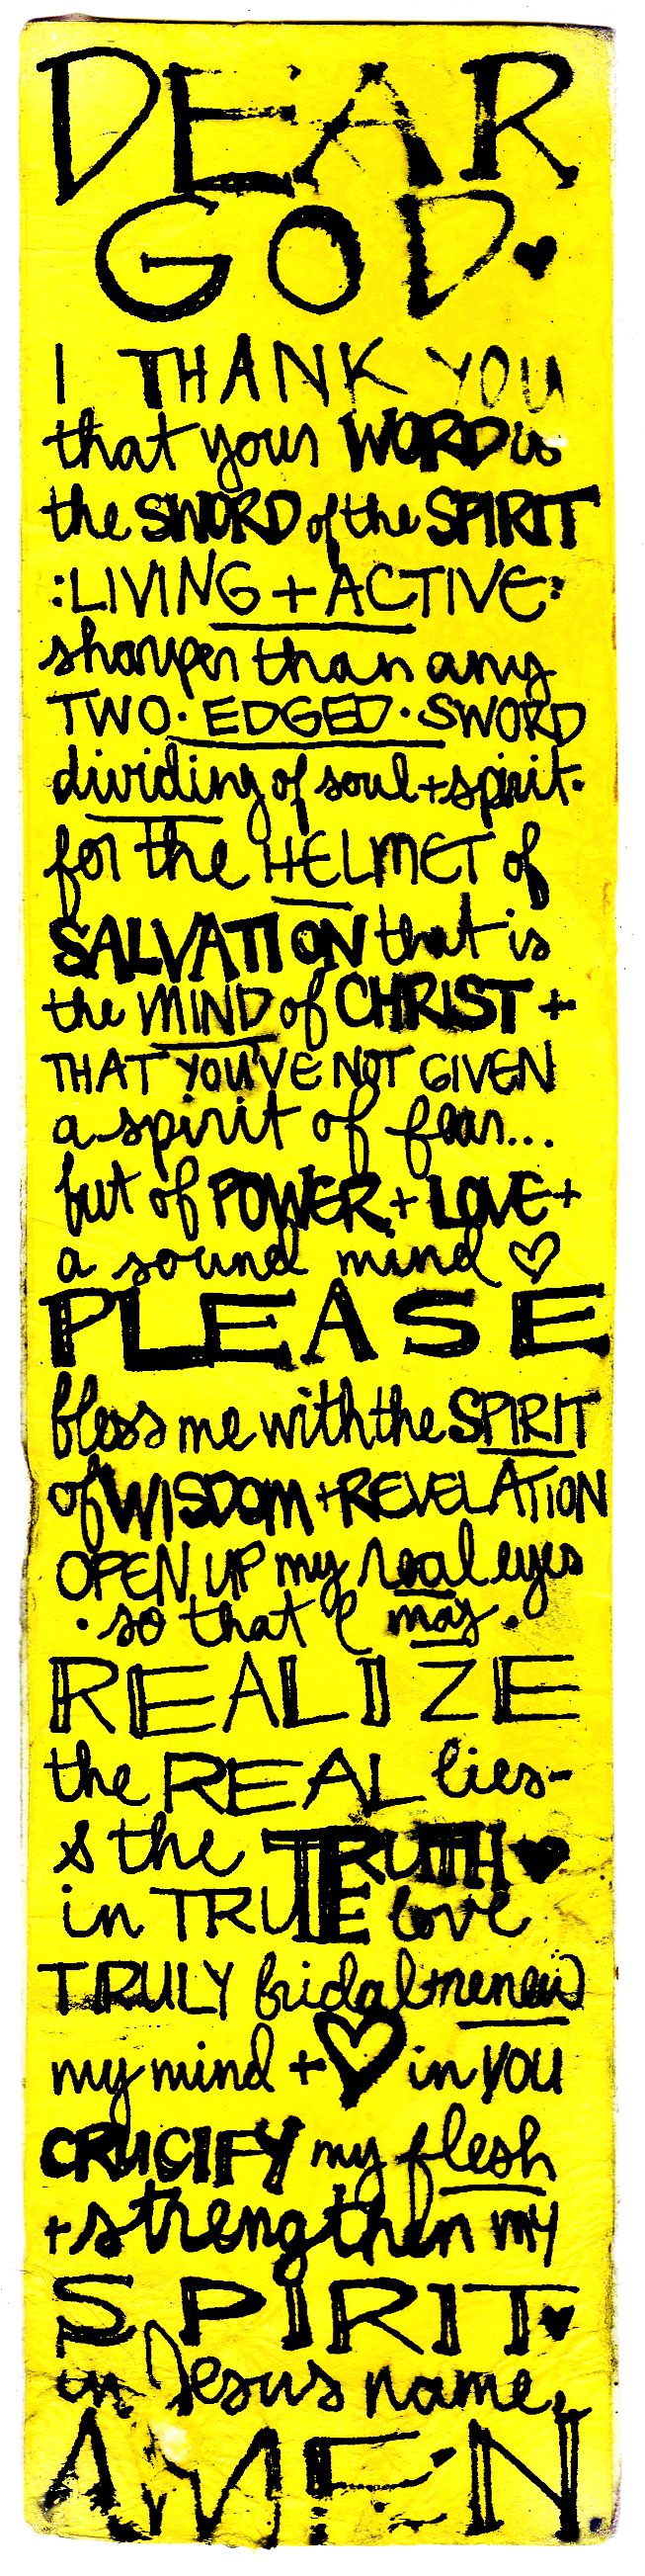 DEAR
GOD♥
I THANK YOU
that your WORD is
the SWORD of the SPIRIT
:LIVING + ACTIVE:
sharper than any
TWO·EDGED·SWORD
dividing of soul + spirit.
for the HELMET of
SALVATION that is
the MIND of CHRIST +
THAT YOU'VE NOT GIVEN
a spirit of fear...
but of POWER + LOVE +
a sound mind ♡
PLEASE
bless me with the SPIRIT
of WISDOM + REVELATION
OPEN UP my real eyes
· so that I may.
REALIZE
the REAL lies-
& the TRUTH ♥
in TRUE love
TRULY bridal + renew
my mind + ♡ in YOU
CRUCIFY my flesh
+ strengthen my
SPIRIT ♥
in Jesus name,
AMEN.